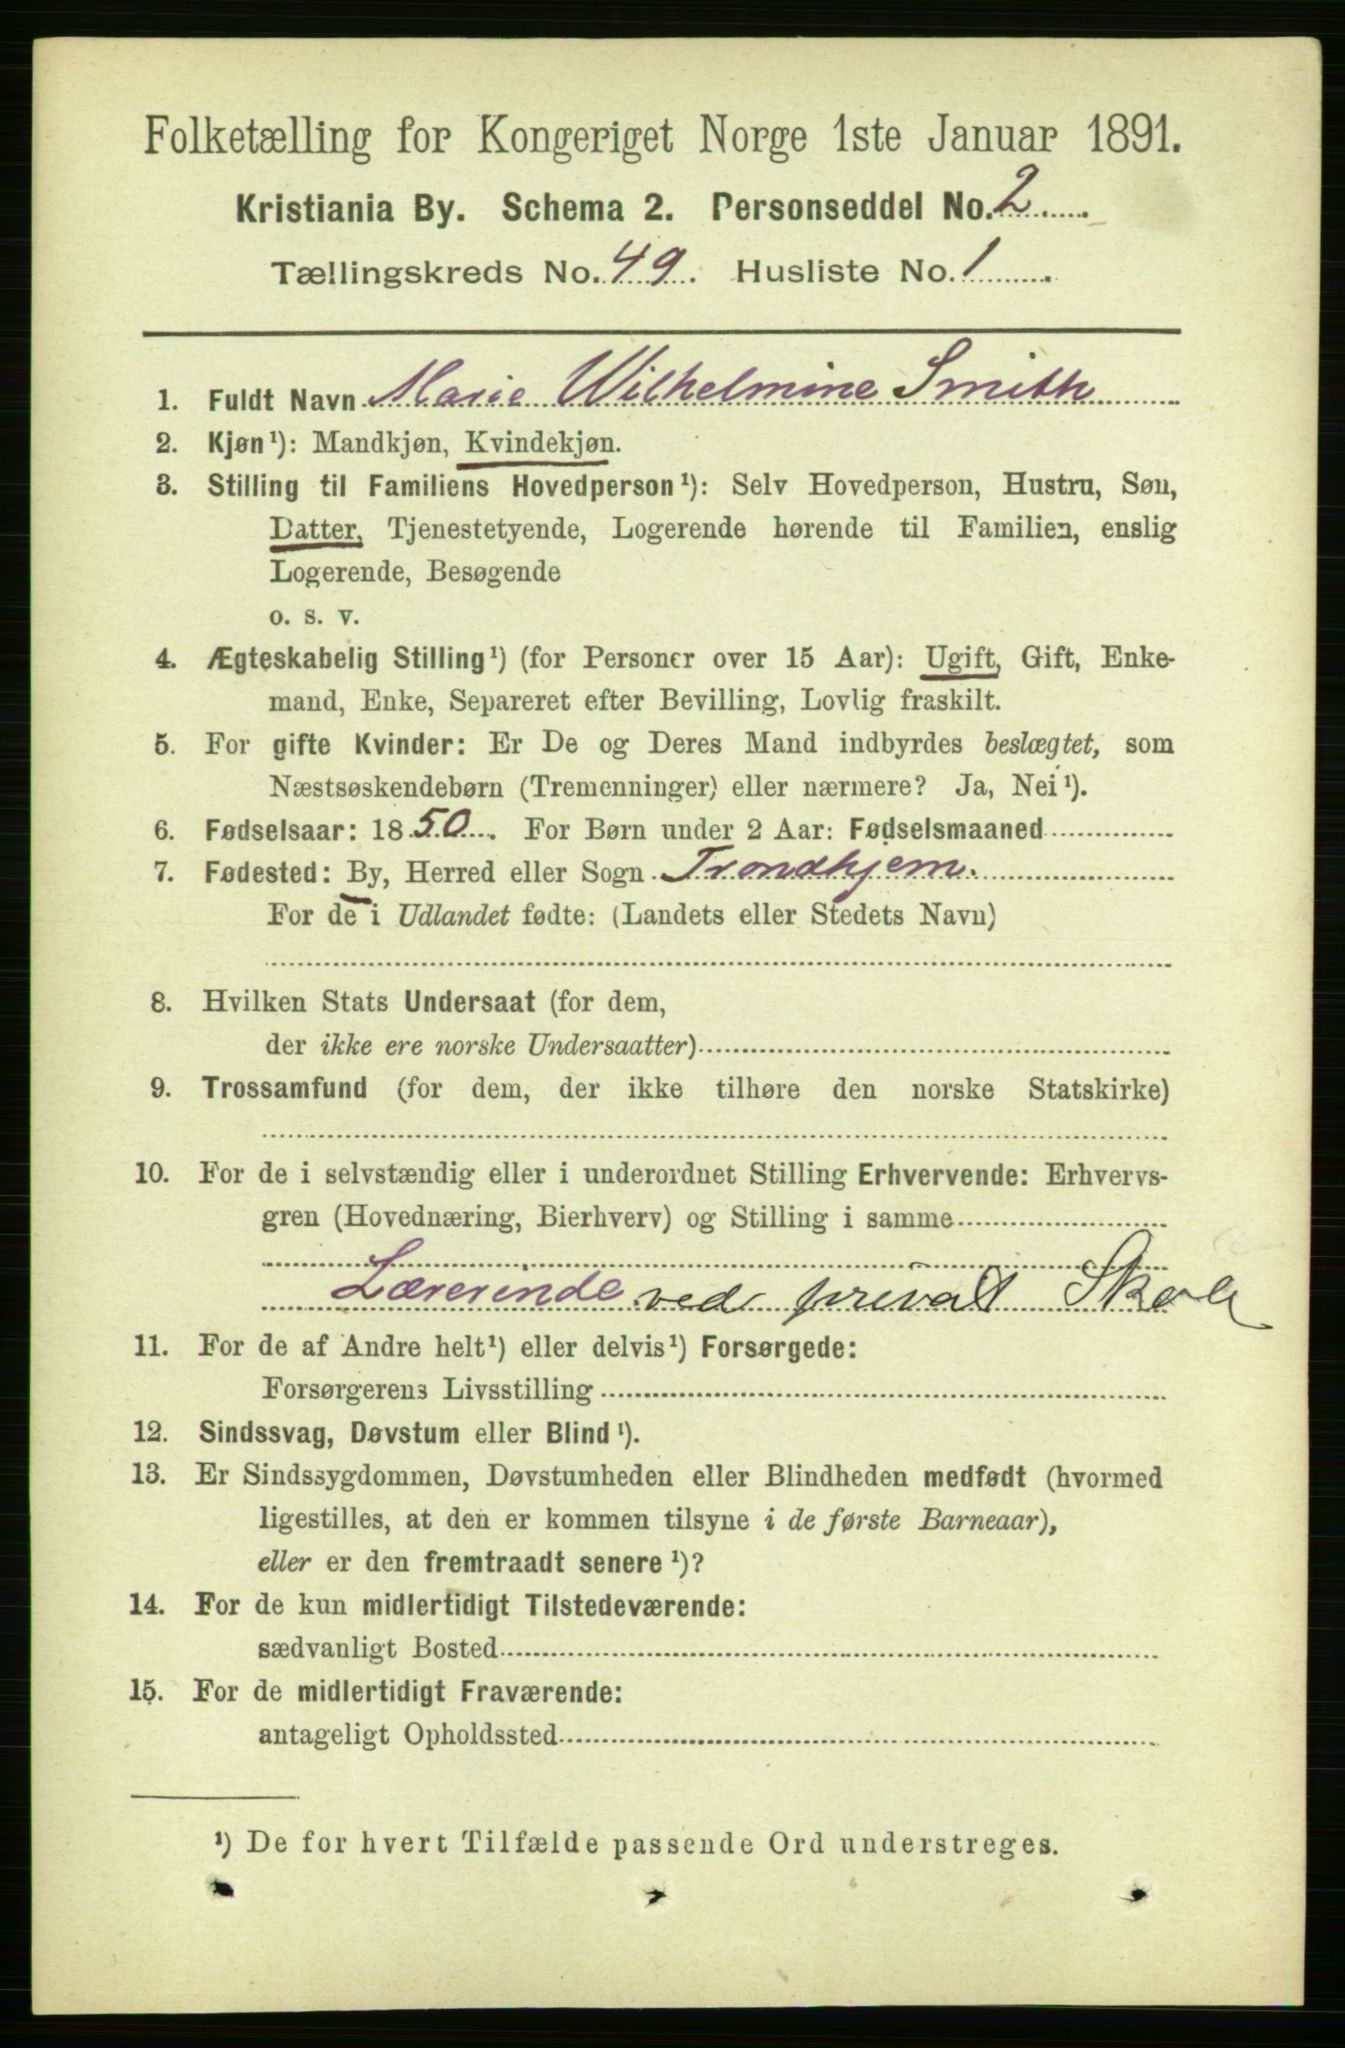 Folketælling for Kongeriget Norge 1ste Januar 1891.
Kristiania By. Schema 2. Personseddel No. 2
Tællingskreds No. 49. Husliste No. 1
1. Fuldt Navn Marie Wilhelmine Smith
2. Kjøn¹): Mandkjøn, Kvindekjøn.
3. Stilling til Familiens Hovedperson¹): Selv Hovedperson, Hustru, Søn,
Datter, Tjenestetyende, Logerende hørende til Familien, enslig
Logerende, Besøgende
o. s. v.
4. Ægteskabelig Stilling¹) (for Personer over 15 Aar): Ugift, Gift, Enke-
mand, Enke, Separeret efter Bevilling, Lovlig fraskilt.
5. For gifte Kvinder: Er De og Deres Mand indbyrdes beslægtet, som
Næstsøskendebørn (Tremenninger) eller nærmere? Ja, Nei¹).
6. Fødselsaar: 1850. For Børn under 2 Aar: Fødselsmaaned
7. Fødested: By, Herred eller Sogn Trondhjem.
For de i Udlandet fødte: (Landets eller Stedets Navn)
8. Hvilken Stats Undersaat (for dem,
der ikke ere norske Undersaatter)
9. Trossamfund (for dem, der ikke tilhøre den norske Statskirke)
10. For de i selvstændig eller i underordnet Stilling Erhvervende: Erhvervs-
gren (Hovednæring, Bierhverv) og Stilling i samme
Lærerinde ved privat Skole
11. For de af Andre helt¹) eller delvis¹) Forsørgede:
Forsørgerens Livsstilling
12. Sindssvag, Døvstum eller Blind¹).
13. Er Sindssygdommen, Døvstumheden eller Blindheden medfødt (hvormed
ligestilles, at den er kommen tilsyne i de første Barneaar),
eller er den fremtraadt senere¹)?
14. For de kun midlertidigt Tilstedeværende:
sædvanligt Bosted
15. For de midlertidigt Fraværende:
antageligt Opholdssted
¹) De for hvert Tilfælde passende Ord understreges.